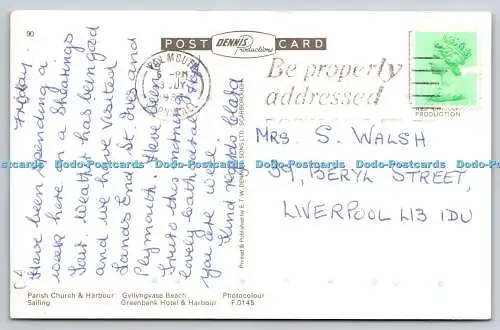 90
POST DENNIS Productions CARD
FALMOUTH
PM
JY
CORNWALL
Be properly
addressed
PRODUCTION
Friday.
Have been spending a
week here on a Shearings
Tour. Weather has been good
and we have visited
Lands End, St. Ives and
Plymouth. Have been
Truro this morning,
lovely cathedral. Hope
you are well.
Kind regards
MRS. S. WALSH
39, BERYL STREET,
LIVERPOOL L13 1DU
Printed & Published by E. T. W. DENNIS & SONS LTD., SCARBOROUGH
Dodo-Postcards Dodo-Postcards Dodo-Postcards Dodo-Postcards Dodo-Postcards
Parish Church & Harbour Gyllyngvase Beach Photocolour
Sailing Greenbank Hotel & Harbour F.0145